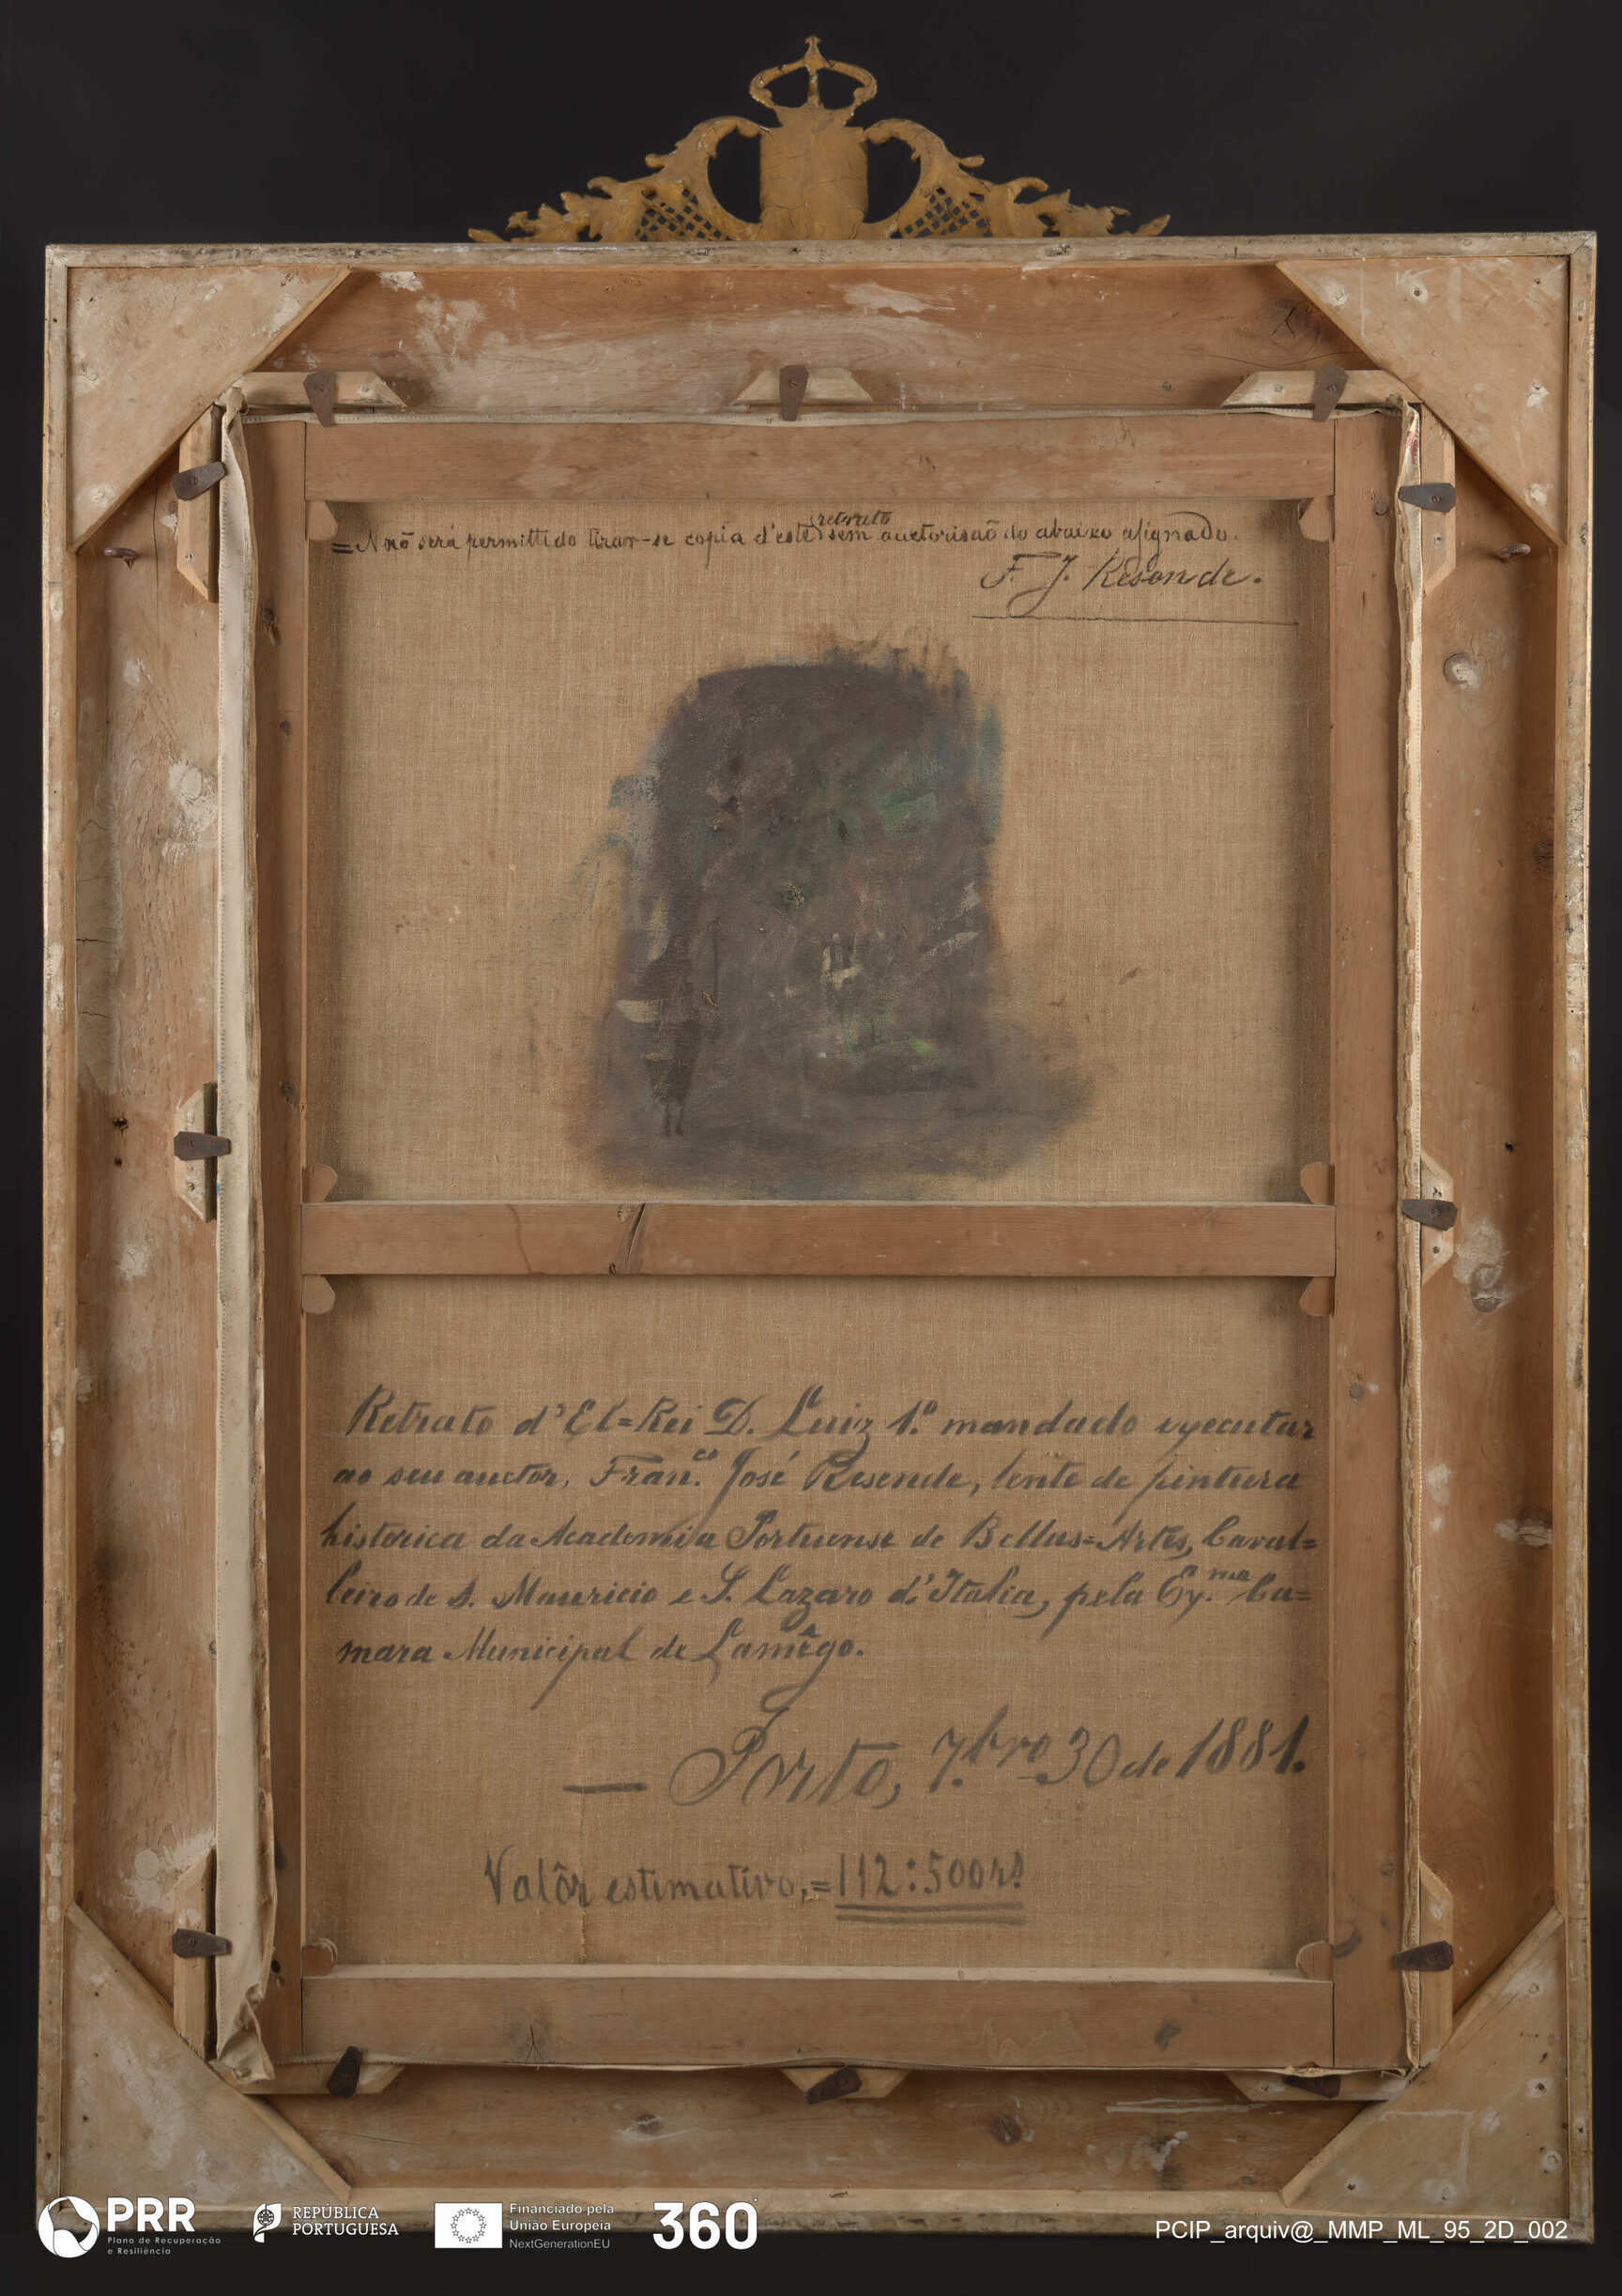 retrato
= Não será permittido tirar-se copia d'este sem auctorisaõ do abaixo assignado.
F. J. Resende.
Retrato d'El=Rei D. Luiz 1.º mandado executar
ao seu auctor, Fran.co José Resende, lente de pintura
historica da Academia Portuense de Bellas=Artes, Caval=
leiro de S. Mauricio e S. Lazaro d'Italia, pela Ex.ma Ca=
mara Municipal de Lamêgo.
— Porto, 7.bro 30 de 1881.
Valôr estimativo,=112:500rs
PRR
Plano de Recuperação
e Resiliência
REPÚBLICA
PORTUGUESA
Financiado pela
União Europeia
NextGenerationEU
360°
PCIP_arquiv@_MMP_ML_95_2D_002